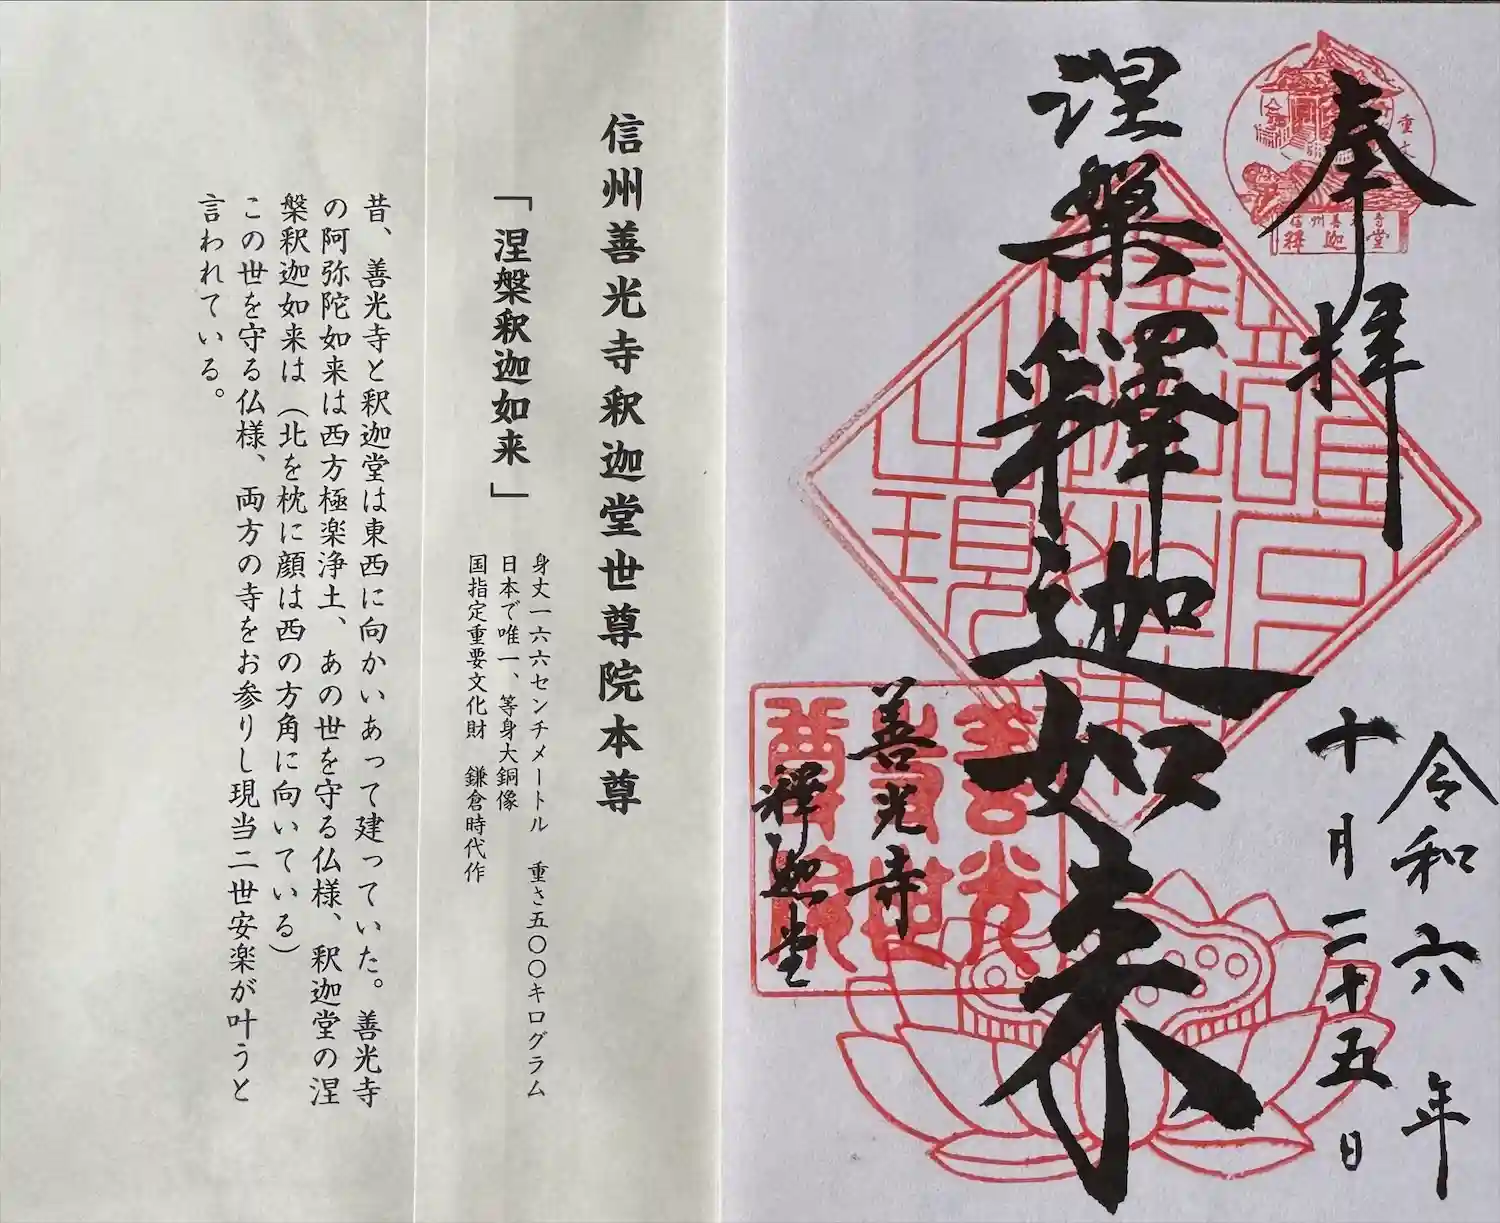 奉拝
令和六年
十月二十五日
涅槃釋迦如来
善光寺
釋迦堂
重文
信州善光寺
釋迦堂
善光寺世尊院
信州善光寺釈迦堂世尊院本尊
「涅槃釈迦如来」
身丈一六六センチメートル 重さ五〇〇キログラム
日本で唯一、等身大銅像
国指定重要文化財 鎌倉時代作
昔、善光寺と釈迦堂は東西に向かいあって建っていた。善光寺
の阿弥陀如来は西方極楽浄土、あの世を守る仏様、釈迦堂の涅
槃釈迦如来は(北を枕に顔は西の方角に向いている)
この世を守る仏様、両方の寺をお参りし現当二世安楽が叶うと
言われている。